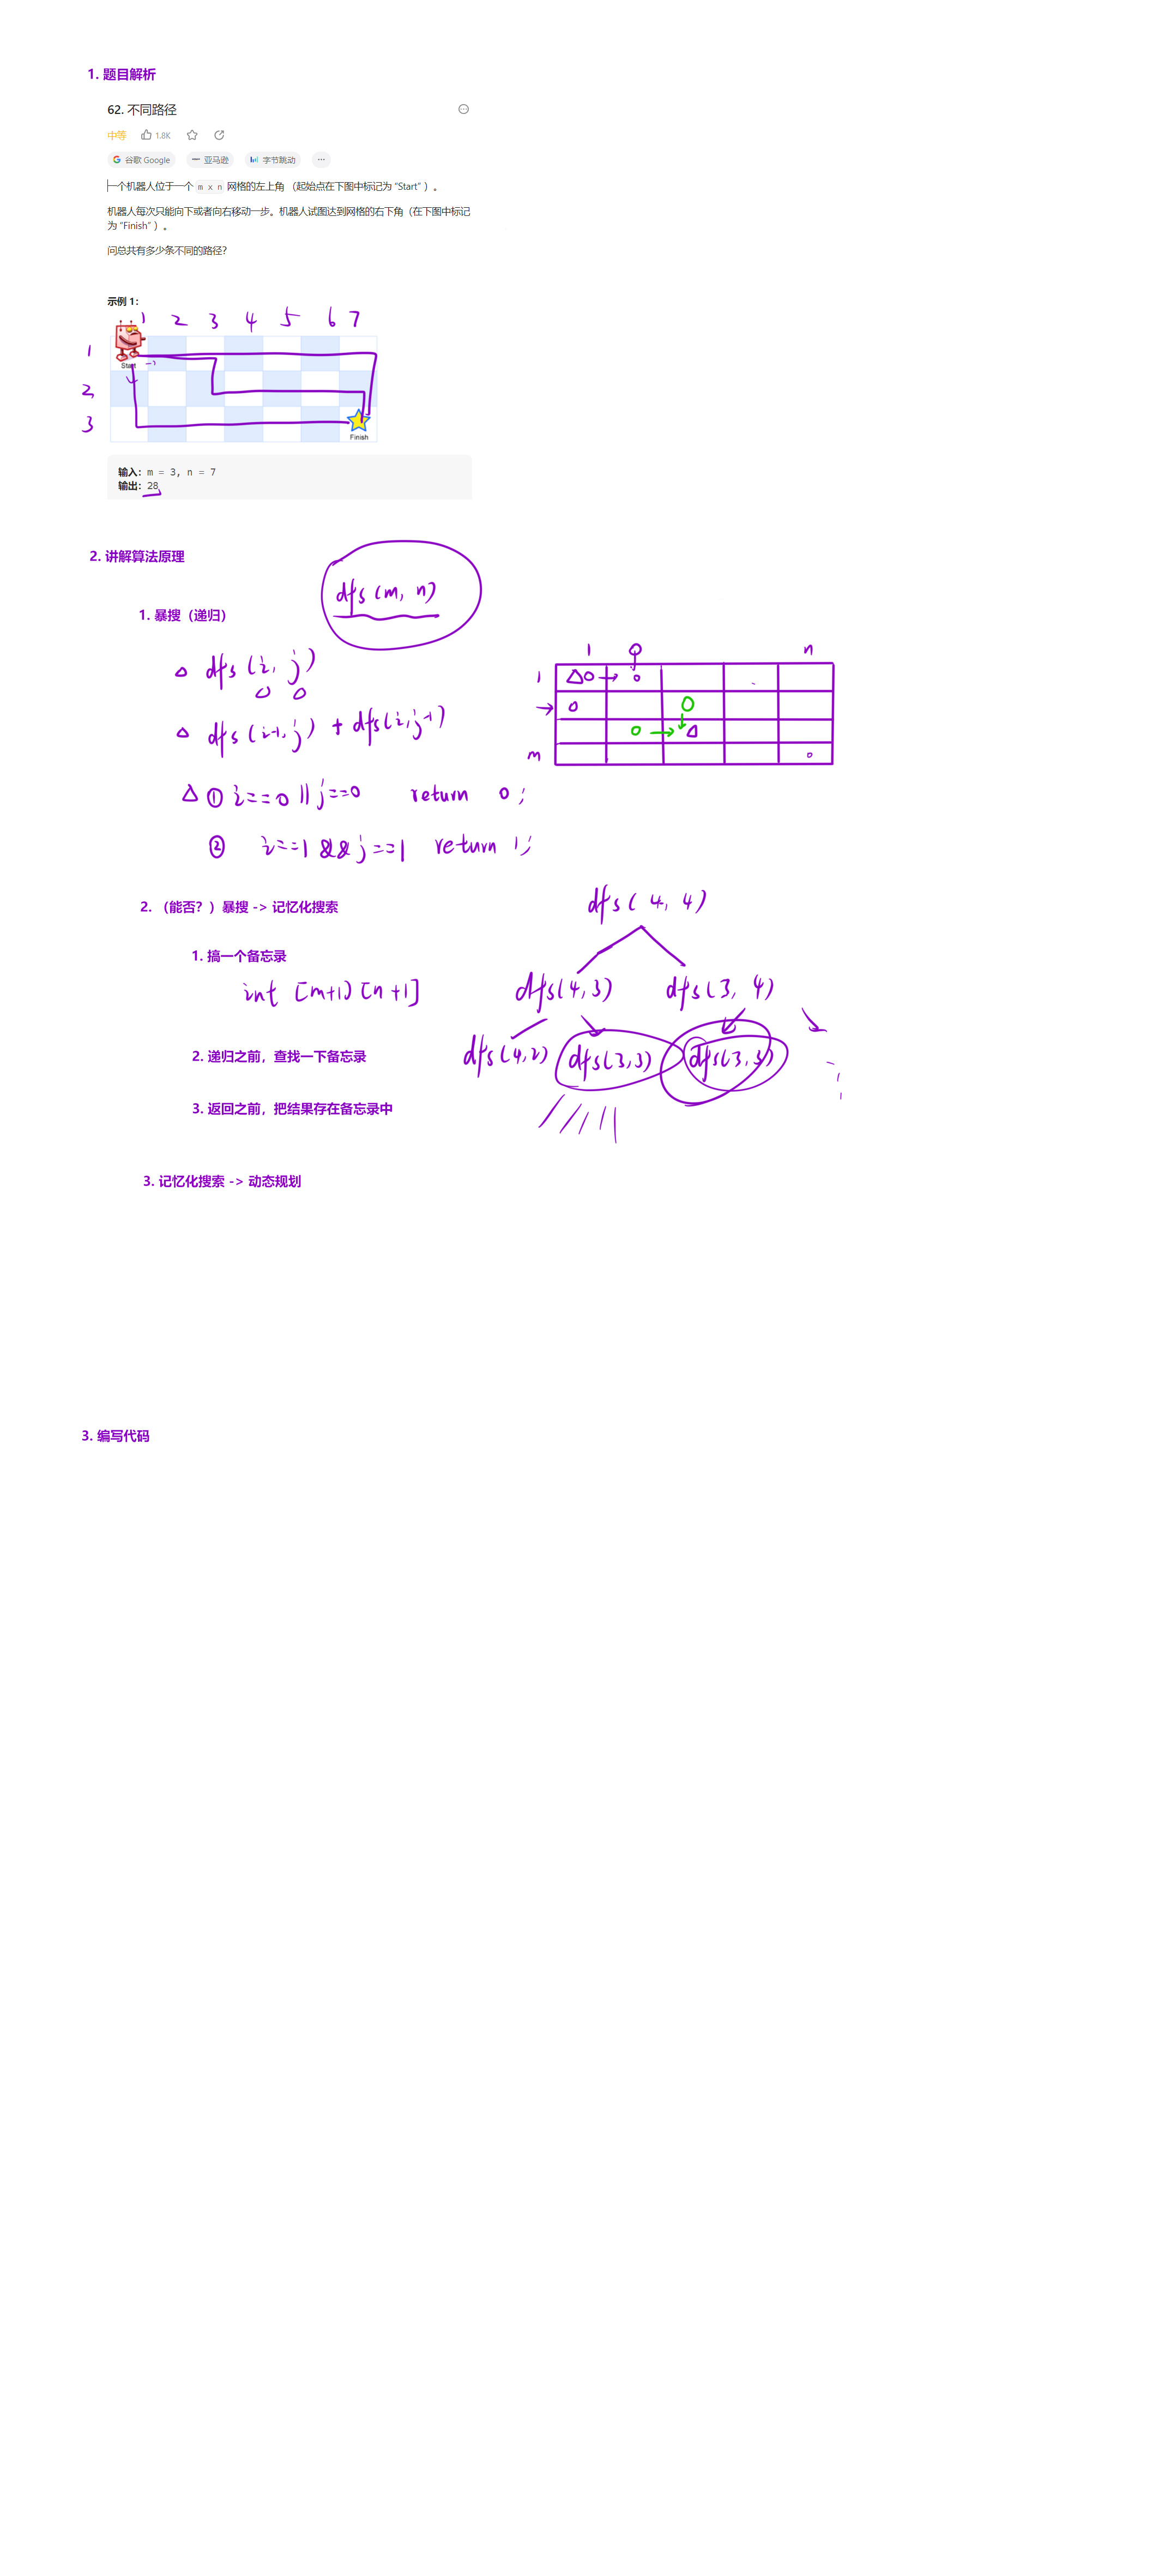 1. 题目解析
62. 不同路径
中等 1.8K
谷歌 Google 亚马逊 字节跳动 ...
一个机器人位于一个 m x n 网格的左上角 （起始点在下图中标记为 “Start” ）。
机器人每次只能向下或者向右移动一步。机器人试图达到网格的右下角（在下图中标记
为 “Finish” ）。
问总共有多少条不同的路径?
示例 1：
1 2 3 4 5 6 7
1
Start
2
3
Finish
输入：m = 3, n = 7
输出：28
2. 讲解算法原理
dfs (m, n)
1. 暴搜（递归）
dfs (i, j)
0 0
dfs (i-1, j) + dfs(i, j-1)
① i==0 || j==0 return 0;
② i==1 && j==1 return 1;
1 n
1
m
2. （能否？）暴搜 -> 记忆化搜索
dfs( 4, 4)
1. 搞一个备忘录
int [m+1) [n+1]
dfs(4,3) dfs(3, 4)
2. 递归之前，查找一下备忘录
dfs(4,2) dfs(3,3) dfs(3,3)
3. 返回之前，把结果存在备忘录中
3. 记忆化搜索 -> 动态规划
3. 编写代码